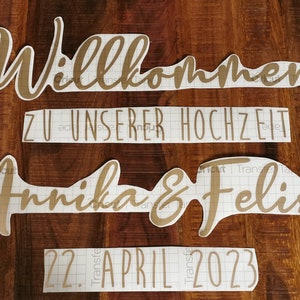 Willkommen
ZU UNSERER HOCHZEIT
Annika & Felix
22. APRIL 2023